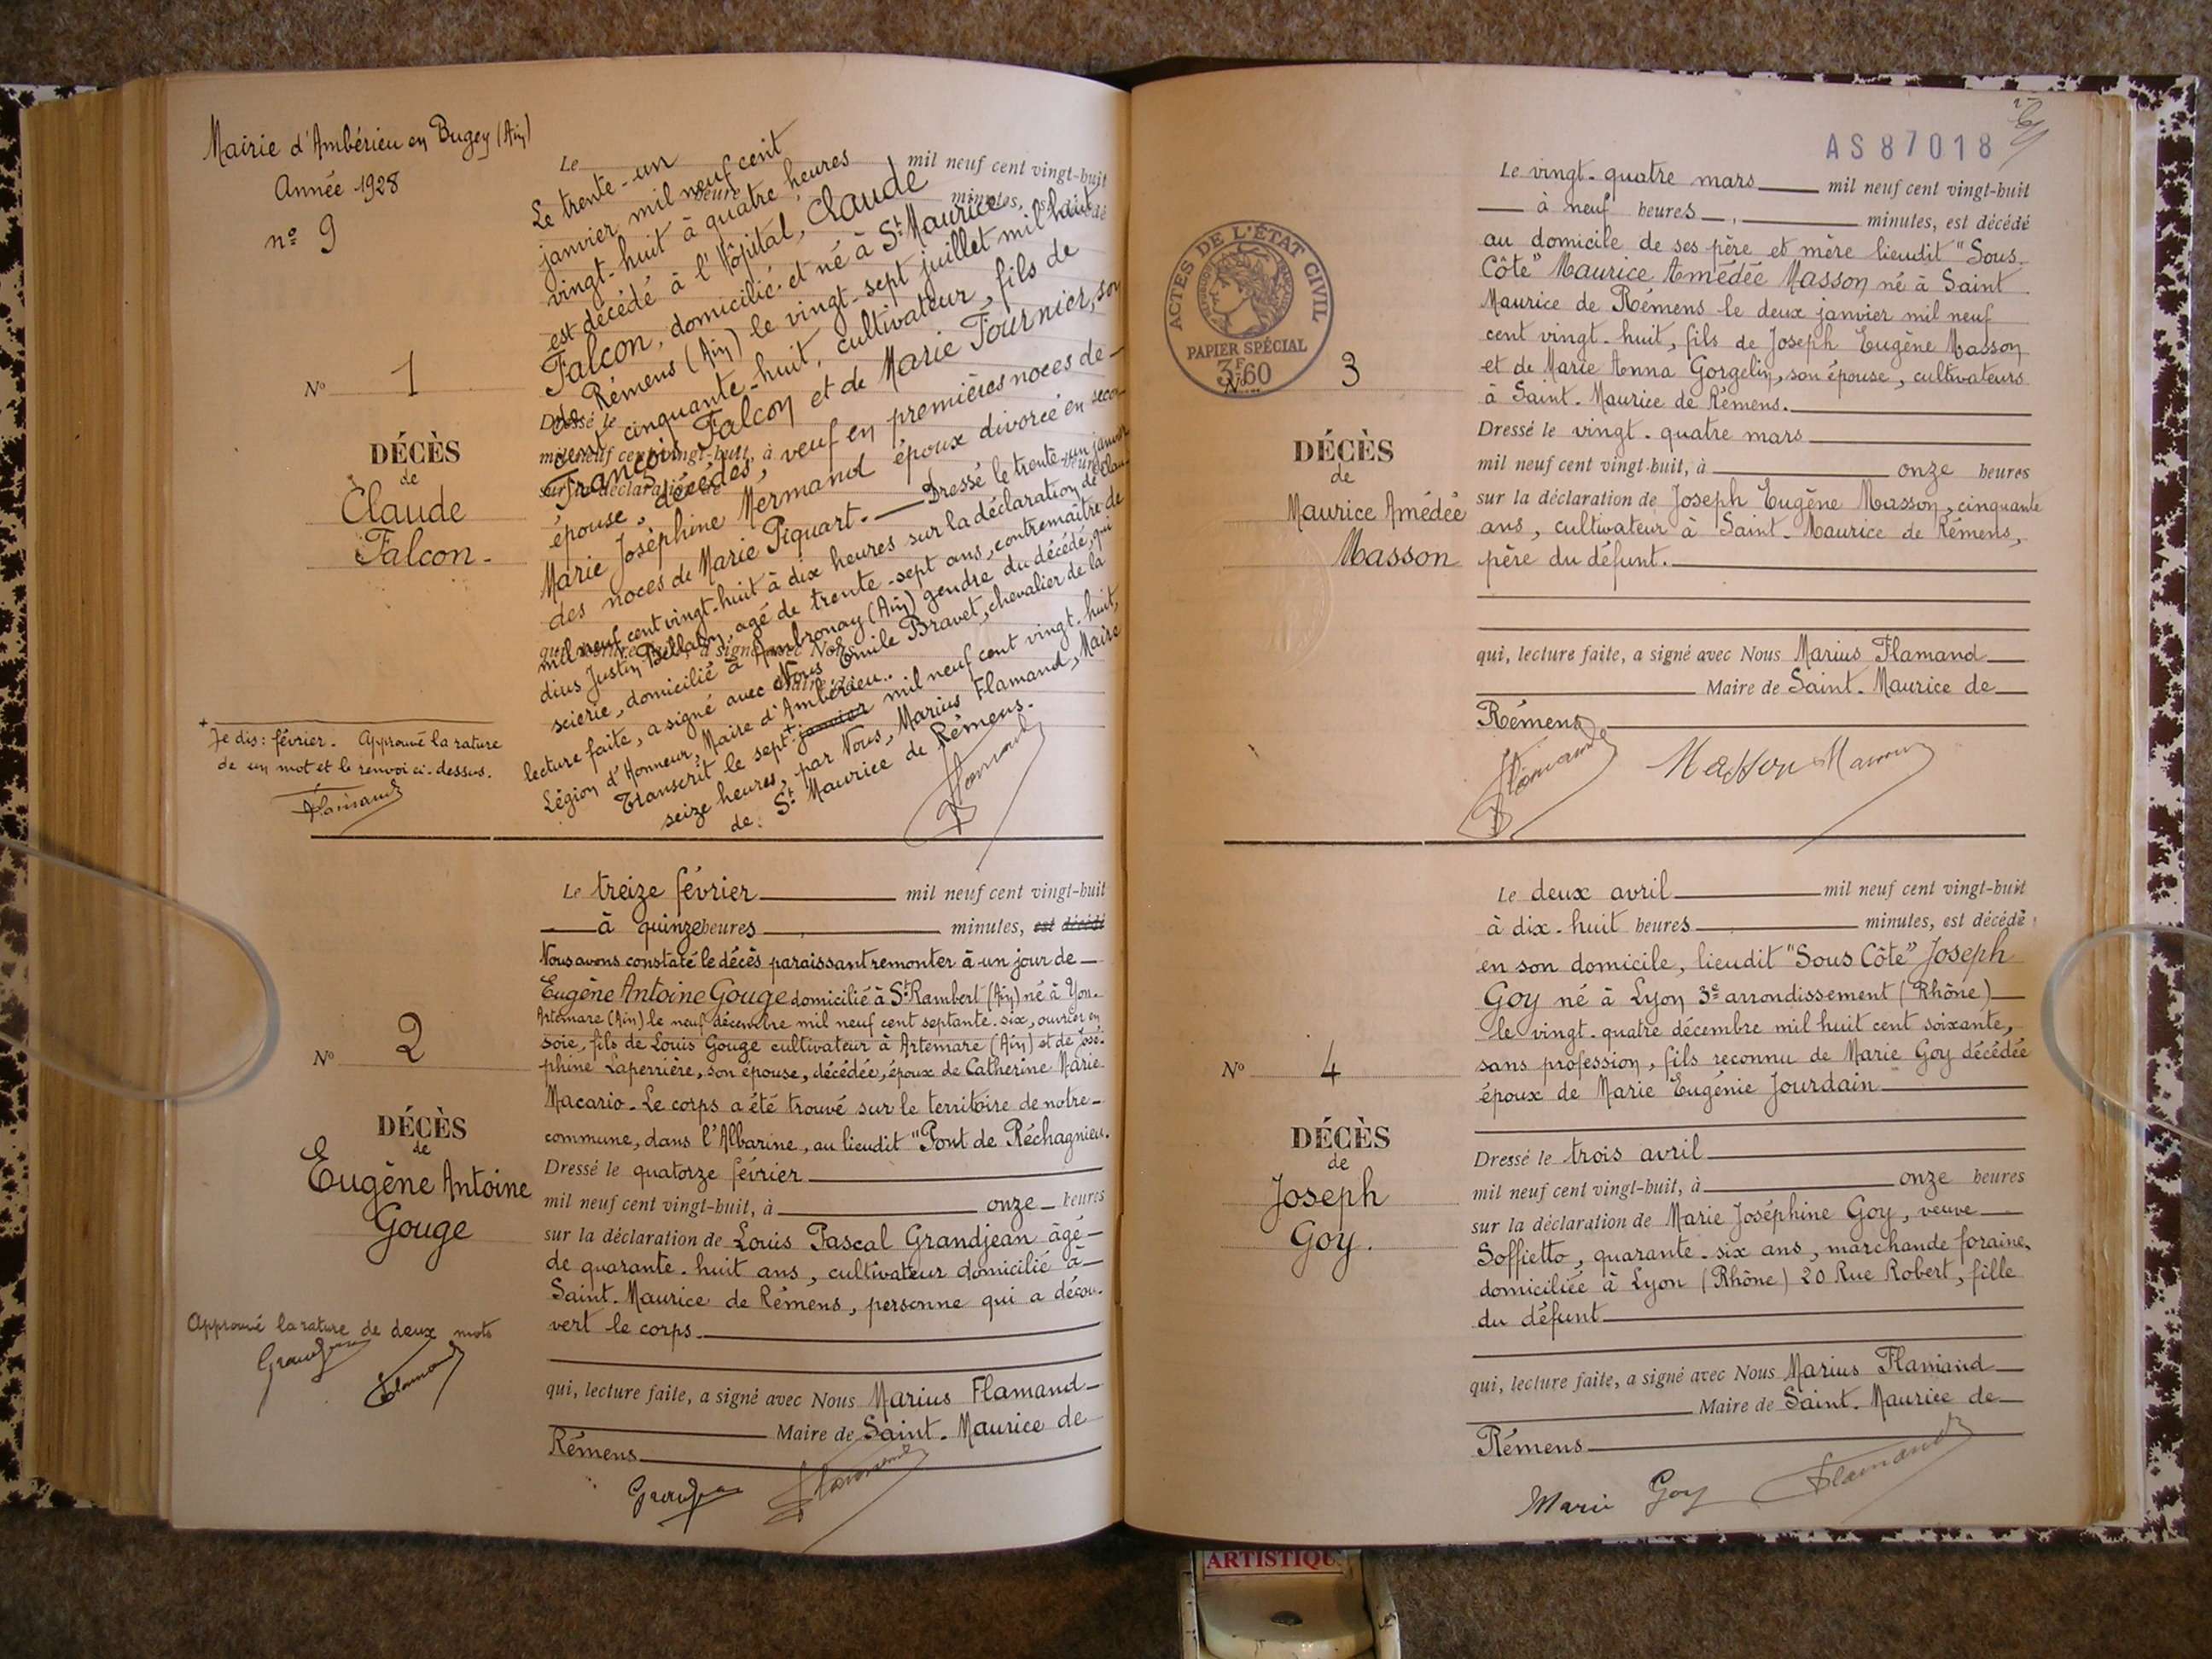 Mairie d'Ambérieu en Bugey (Ain)
Année 1928
nº 9
Nº 1
DÉCÈS
de
Claude
Falcon.
+
Je dis : février. Approuvé la rature
de un mot et le renvoi ci-dessus.
Flamand
Le mil neuf cent vingt-huit
heure minutes, est décédé
Le trente-un
janvier mil neuf cent
vingt-huit à quatre heures
est décédé à l'Hôpital, Claude
Falcon, domicilié et né à St Maurice
de Rémens (Ain) le vingt-sept juillet mil huit
cent cinquante-huit, cultivateur, fils de
François Falcon et de Marie Fournier, son
épouse, décédés, veuf en premières noces de
Marie Joséphine Mermand époux divorcé en secon-
des noces de Marie Piquart. — Dressé le trente-un janvier
mil neuf cent vingt-huit à dix heures sur la déclaration de Clau-
dius Justin, agé de trente-sept ans, contremaître de
scierie, domicilié à Ambronay (Ain) gendre du décédé, qui
lecture faite, a signé avec Nous Emile Bravet, chevalier de la
Légion d'Honneur, Maire d'Ambérieu.
Transcrit le sept + janvier mil neuf cent vingt-huit,
seize heures, par Nous, Marius Flamand, Maire
de St Maurice de Rémens.
Flamand
Nº 2
DÉCÈS
de
Eugène Antoine
Gouge
Approuvé la rature de deux mots
Grandjean
Flamand
Le treize février mil neuf cent vingt-huit
à quinze heures minutes, est décédé
Nous avons constaté le décès paraissant remonter à un jour de
Eugène Antoine Gouge domicilié à St Rambert (Ain) né à Yon-
Artemare (Ain) le neuf décembre mil neuf cent septante-six, ouvrier en
soie, fils de Louis Gouge cultivateur à Artemare (Ain) et de José-
phine Laperrière, son épouse, décédée, époux de Catherine Marie
Macario. Le corps a été trouvé sur le territoire de notre
commune, dans l'Albarine, au lieudit "Pont de Réchagnieu.
Dressé le quatorze février
mil neuf cent vingt-huit, à onze heures
sur la déclaration de Louis Pascal Grandjean âgé
de quarante-huit ans, cultivateur domicilié à
Saint-Maurice de Rémens, personne qui a décou-
vert le corps.
qui, lecture faite, a signé avec Nous Marius Flamand
Maire de Saint-Maurice de
Rémens
Grandjean Flamand
AS 87018
ACTES DE L'ÉTAT CIVIL
PAPIER SPÉCIAL
3F60
Nº 3
DÉCÈS
de
Maurice Amédée
Masson
Le vingt-quatre mars mil neuf cent vingt-huit
à neuf heures minutes, est décédé
au domicile de ses père et mère lieudit "Sous
Côte" Maurice Amédée Masson né à Saint
Maurice de Rémens le deux janvier mil neuf
cent vingt-huit, fils de Joseph Eugène Masson
et de Marie Anna Gorgelin, son épouse, cultivateurs
à Saint-Maurice de Rémens.
Dressé le vingt-quatre mars
mil neuf cent vingt-huit, à onze heures
sur la déclaration de Joseph Eugène Masson, cinquante
ans, cultivateur à Saint-Maurice de Rémens,
père du défunt.
qui, lecture faite, a signé avec Nous Marius Flamand
Maire de Saint-Maurice de
Rémens
Flamand Masson
Nº 4
DÉCÈS
de
Joseph
Goy.
Le deux avril mil neuf cent vingt-huit
à dix-huit heures minutes, est décédé
en son domicile, lieudit "Sous Côte" Joseph
Goy né à Lyon 3e arrondissement (Rhône)
le vingt-quatre décembre mil huit cent soixante,
sans profession, fils reconnu de Marie Goy décédée
époux de Marie Eugénie Jourdain
Dressé le trois avril
mil neuf cent vingt-huit, à onze heures
sur la déclaration de Marie Joséphine Goy, veuve
Soffietto, quarante-six ans, marchande foraine,
domiciliée à Lyon (Rhône) 20 Rue Robert, fille
du défunt
qui, lecture faite, a signé avec Nous Marius Flamand
Maire de Saint-Maurice de
Rémens
Marie Goy Flamand
ARTISTIQU